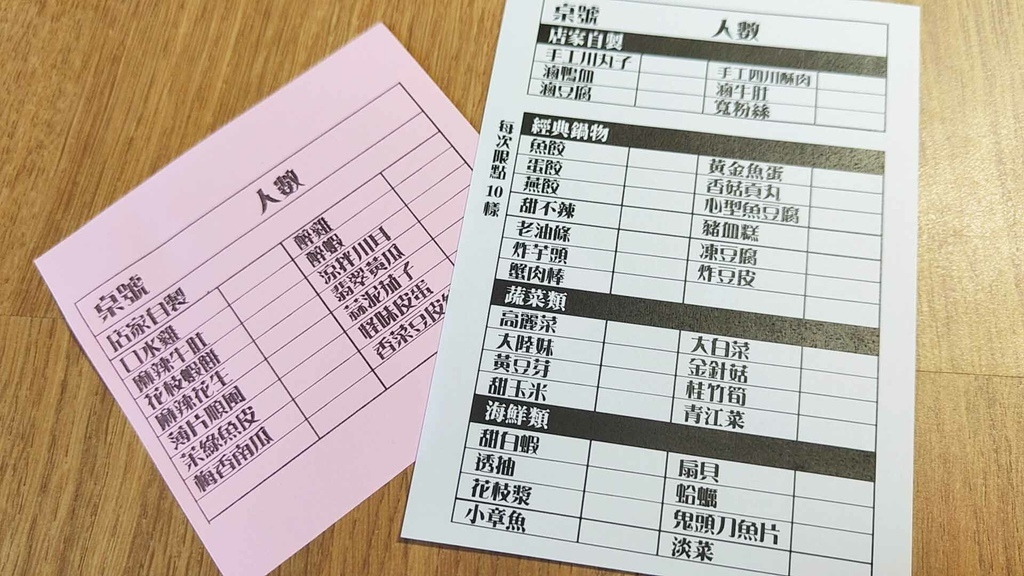 桌號 人數
店家自製
口水雞 醉雞
麻辣牛肚 醉蝦
花枝蝦餅 涼拌川耳
麻辣花生 翡翠黃瓜
薄片順風
涼綠魚皮 怪味皮蛋
梅香南瓜 香菜豆皮
桌號 人數
店家自製
手工川丸子 手工四川酥肉
滷鴨血 滷牛肚
滷豆腐 寬粉絲
每次限點10樣
經典鍋物
魚餃 黃金魚蛋
蛋餃 香菇貢丸
燕餃 心型魚豆腐
甜不辣 豬血糕
老油條 凍豆腐
炸芋頭 炸豆皮
蟹肉棒
蔬菜類
高麗菜 大白菜
大陸妹 金針菇
黃豆芽 桂竹筍
甜玉米 青江菜
海鮮類
甜白蝦 扇貝
透抽 蛤蠣
花枝漿 鬼頭刀魚片
小章魚 淡菜